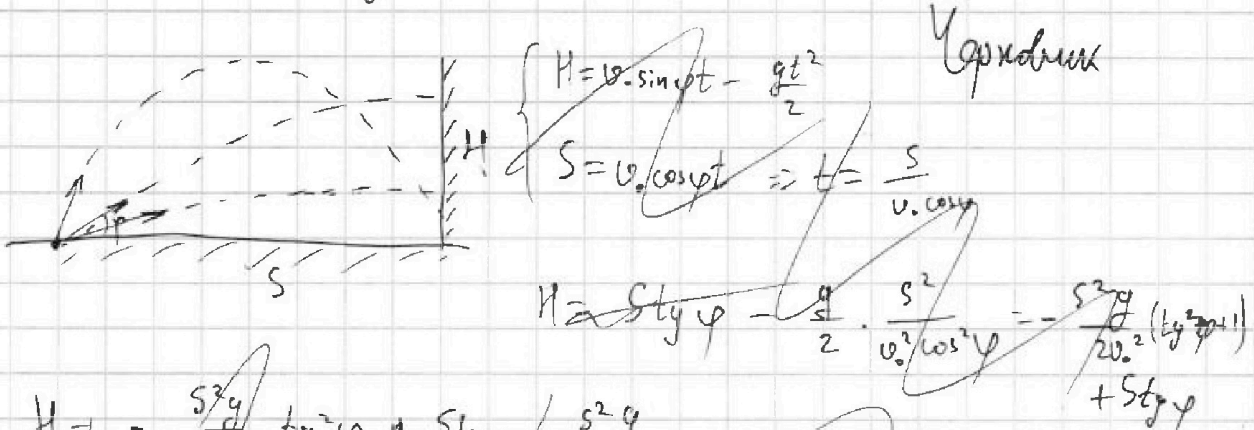 Черновик
H = v₀ sinφt - gt²/2
H
S = v₀ cosφt ⇒ t = S/(v₀ cosφ)
φ
S
H = S tg φ - g/2 · S²/(v₀² cos² φ) = - S²g/(2v₀²) (tg²φ+1)
+ S tg φ